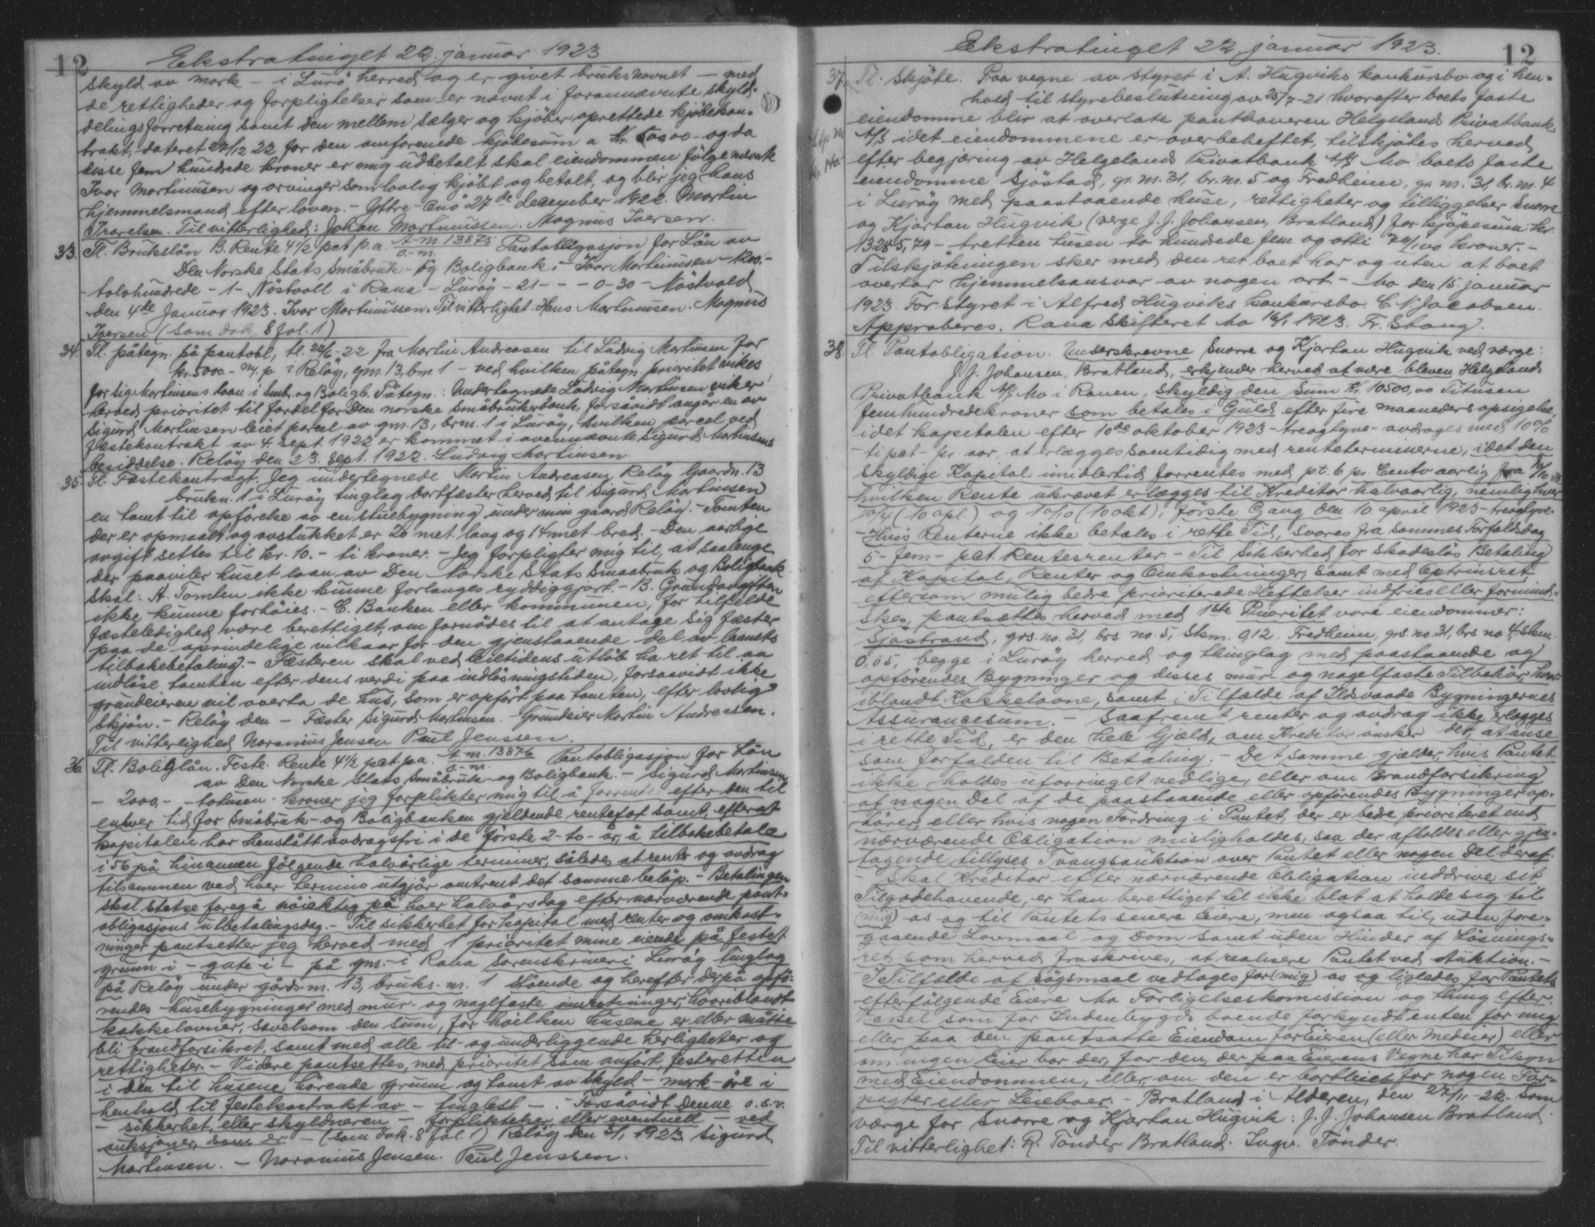 12
Ekstratinget 22. januar 1923
skyld av mark - i Lurø herred og er givet bruksnavnet - med
de rettigheder og forpligtelser som er nævnt i forannævnte skyld-
delingsforretning samt den mellem sælger og kjøber oprettede kjøbekon-
trakt dateret 27/12 22 for den omforenede kjøbesum a kr. 500.00 - og da
disse fem hundrede kroner er mig udbetalt skal eiendommen følge nævnte
Ivar Martinusen og arvinger som lovlig kjøbt og betalt, og blir jeg hans
hjemmelsmand efter loven. - Yttre - 27de december 1922. Martin
Iversen. Til vitterlighed: Johan Martinussen. Magnus Iversen.
33. Tl. Brukslån B. Rente 4 1/2 pct p.a. A-nr. 13875 Pantobligasjon for Lån av
Den Norske Stats Småbruk- og Boligbank. - Ivar Martinussen - 1200.-
tolvhundrede - 1 - Nöstvoll i Rana - Lurøy - 21 - - - 0-30 - Nöstvold
den 4de Januar 1923. Ivar Martinussen. Til vitterlighet Hans Martinussen. Magnus
Iversen (som dok. 8 fol. 1)
34. Tl. påtegn. på pantobl. tl. 22/6-22 fra Martin Andreasen til Ludvig Martinsen for
kr. 5000 - m. p. i Reløy, gnr. 13, bnr. 1 - ved hvilken påtegn prioritet vikes
for Sig. Martinsens laan i Småb. og Boligb. Påtegn.: Undertegnede Ludvig Martinsen viker
herved prioritet til fordel for Den norske Småbrukerbank, forsåvidt angår en av
Sigurd Martinsen leiet parcel av gnr. 13, brnr. 1 i Lurøy, hvilken parcel ved
Fæstekontrakt av 4 Sept. 1922 er kommet i ovennævnte Sigurd Martinsens
besiddelse. Reløy den 23. Sept. 1922. Ludvig Martinsen.
35. Tl. Fæstekontragt. Jeg undertegnede Martin Andreasen Reløy Gaardn. 13
bruksn. 1 i Lurøy tinglag bortfæster herved til Sigurd Martinsen
en tomt til opførelse av en stuebygning under min gaard Reløy. - Tomten
der er opmaalt og avstukket er 20 met. lang og 14 met. bred. - Den aarlige
avgift settes til kr. 10. - ti kroner. - Jeg forpligter mig til, at saalenge
der paaviler huset laan av Den Norske Stats Smaabruk og Boligbank
skal: A. Tomten ikke kunne forlanges ryddiggjort. - B. Grundavgiften
ikke kunne forhöies. - C. Banken eller kommunen, for tilfælde
fæsteledighed være berettiget, om fornødes til at antage sig fæster
paa de oprindelige vilkaar for den gjenstaaende del av laanets
tilbakebetaling. - Fæsteren skal ved leietidens utlöb ha ret til aa
indlöse tomten efter dens verdi paa indlösningstiden, forsaavidt ikke
grundeieren vil overta de hus, som er opført paa tomten, efter lovlig
skjøn. - Reløy den - Fæster Sigurd Martinsen. Grundeier Martin Andreasen.
Til vitterlighed Noranius Jensen Paul Jenssen.
36. Tl. Boliglån. Feste. Rente 4 1/2 pct. p.a. A-nr. 13876 Pantobligasjon for Lån
av Den Norske Stats Småbruk- og Boligbank. - Sigurd Martinsen
- 2000,- totusen kroner jeg forplikter mig til å forrente efter den til
enhver tid for Småbruk- og Boligbanken gjeldende rentefot samt, efterat
kapitalen har henstått avdragsfri i de første 2 - to - år, å tilbakebetale
i 56 på hinannen følgende halvårlige terminer, således at rente og avdrag
tilsammen ved hver termins utgjør omtrent det samme beløp. - Betalingen
skal stetse foregå nøiaktig på hver halvårsdag efter nærværende pant-
obligasjons utbetalingsdag. - Til sikkerhet for kapital med renter og omkost-
ninger pantsetter jeg herved med 1 prioritet mine eiende på festet
grunn i - gate i - på gnr. - i Rana sorenskriveri Lurøy tinglag
på Reløy under gårds-nr. 13, bruks-nr. 1 stående og herefter derpå opfø-
rendes husebygninger med mur- og naglfaste innretninger hvoriblandt
kakkelovner, såvelsom den sum, for hvilken husene er eller måtte
bli brandforsikret, samt med alle til- og underliggende herligheter og
rettigheter. - Videre pantsettes, med prioritet som anført, festeretten
i den til husene hörende grunn og tomt av skyld - mark - öre i
henhold til festekontrakt av - tinglest - . Forsåvidt denne o.s.v.
- sikkerhet, eller skyldneren forpliktelser, eller eventuelt - ved
auksjoner, som er - (som dok. 8 fol. 1) Reløy den 3/1 1923 Sigurd
Martinsen. - Noranius Jensen. Paul Jenssen.
Ekstratinget 22. januar 1923.
12
37. Tl. Skjöte. Paa vegne av styret i A. Hugviks konkursbo og i hen-
hold til styrebeslutning av 25/7-21 hvorefter boets faste
eiendomme blir at overlate panthaveren Helgeland Privatbank
A/S idet eiendommene er overbeheftet, tilskjøtes herved
efter begjæring av Helgelands Privatbank A/S Mo boets faste
eiendomme Sjöstad, gr. nr. 31, br. nr. 5 og Fredheim, gr. nr. 31, br. nr. 4
i Lurøy med paastaaende huse, rettigheter og tilliggelser Snorre
og Kjartan Hugvik (verge J. J. Johansen, Bratland) for kjøpesum kr.
13285,79 - tretten tusen to hundrede fem og otti 79/100 kroner. -
Tilskjötningen sker med den ret boet har og uten at boet
overtar hjemmelsansvar av nogen art - Mo den 15 januar
1923. For Styret i Alfred Hugviks konkursbo. C. N. Jacobsen.
Approberes. Rana Skifteret Mo 16/1 1923. Fr. Stang.
38. Tl. Pantobligation. Underskrevne Snorre og Kjartan Hugvik ved værge:
J. J. Johansen, Bratland, erkjender herved at være bleven Helgelands
Privatbank A/S Mo i Ranen, skyldig den Sum Kr. 10500,00 Titusen
femhundrede kroner som betales i Guld efter fire maaneders opsigelse,
idet kapitalen efter 10de oktober 1923 - treogtyve - avdrages med 10%
- ti pct - pr. aar, at erlægges samtidig med renteterminerne, idet den
skyldige Kapital imidlertid forrentes med pt. 6 pr. Cento aarlig fra
hvilken Rente ukrævet erlægges til Kreditor halvaarlig, nemlig hver
10/4 (10 apl.) og 10/10 (10 okt.), første Gang den 10 april 1923 - treogtyve.
- Hvis Renterne ikke betales i rette Tid, svares fra sammes Forfaldsdag
5 - fem - pct Rentesrenter. - Til Sikkerhed for skadesløs Betaling
af Kapital, Renter og Omkostninger, samt med Optrinsret
eftersom mulig bedre prioriterede Heftelser indfries eller formind-
skes, pantsættes herved med 1ste Prioritet vore eiendommer:
Sjøstrand, grs no. 31, brs no. 5, Skm. 0,12. Fredheim, grs no. 31, brs no. 4, Skm.
0.05, begge i Lurøy herred og thinglag med paastaaende og
opførendes Bygninger og disses mur- og nagelfaste Tilbehør, hvor-
iblandt Kakkelovne, samt i Tilfælde af Ildsvaade Bygningernes
Assurancesum. - Saafremt renter og avdrag ikke erlægges
i rette Tid, er den hele Gjæld, om Kreditor ønsker det, at anse
som forfalden til Betaling. - Det samme gjælder, hvis Pantet
ikke holdes uforringet vedlige, eller om Brandforsikring
af nogen Del af de paastaaende eller opførendes Bygninger op-
hører, eller hvis nogen Fordring i Pantet, der er bedre prioriteret end
nærværende Obligation misligholdes, saa der afholdes eller gjen-
tagende tillyses Tvangsauktion over Pantet eller nogen Del deraf.
- Skal Kreditor efter nærværende Obligation inddrive sit
Tilgodehavende, er han berettiget til ikke blot at holde sig til
(mig) os og til Pantets senere Eiere, men ogsaa til, uden fore-
gaaende Lovmaal og Dom samt uden Hinder af Løsnings-
ret som herved fraskrives, at realisere Pantet ved Auktion. -
I Tilfælde af Søgsmaal vedtages for (mig) os og ligeledes for Pantets
efterfølgende Eiere Mo Forligelseskomission og thing efter
Varsel som for Indenbygds boende forkyndt enten for mig
eller paa den pantsatte Eiendom for Eieren (eller medeier) eller
om ingen Eier bor der, for den, der paa Eierens Vegne har Tilsyn
med Eiendommen, eller, om den er bortleiet for nogen For-
pagter eller Leieboer. - Bratland i Alderen, den 27/11-22. Som
værge for Snorre og Kjartan Hugvik: J. J. Johansen Bratland.
Til vitterlighet: R. Tønder Bratland. Ingv. Tønder.